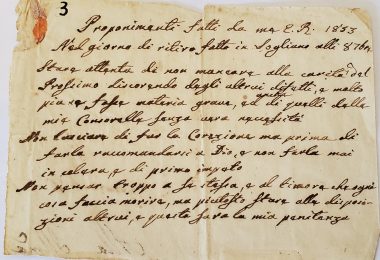 3
Proponimenti fatti da me E. R. 1853
Nel giorno di ritiro fatti in Sogliano alli 8 7bre
Stare attenta di non mancare alla carità del
Prossimo discorendo degli altrui difetti, e molto
più se fosse materia grave, e anche di quelli delle
mie Consorelle senza vera necessità
Non lasciare di far la Corezione ma prima di
farla raccomandarsi a Dio, e non farla mai
in colera, e di primo impeto
Non pensar troppo a se stessa, e al timore che ogni
cosa faccia morire, ma piutosto stare alle disposi-
zioni altrui, e questo sarà la mia penitenza